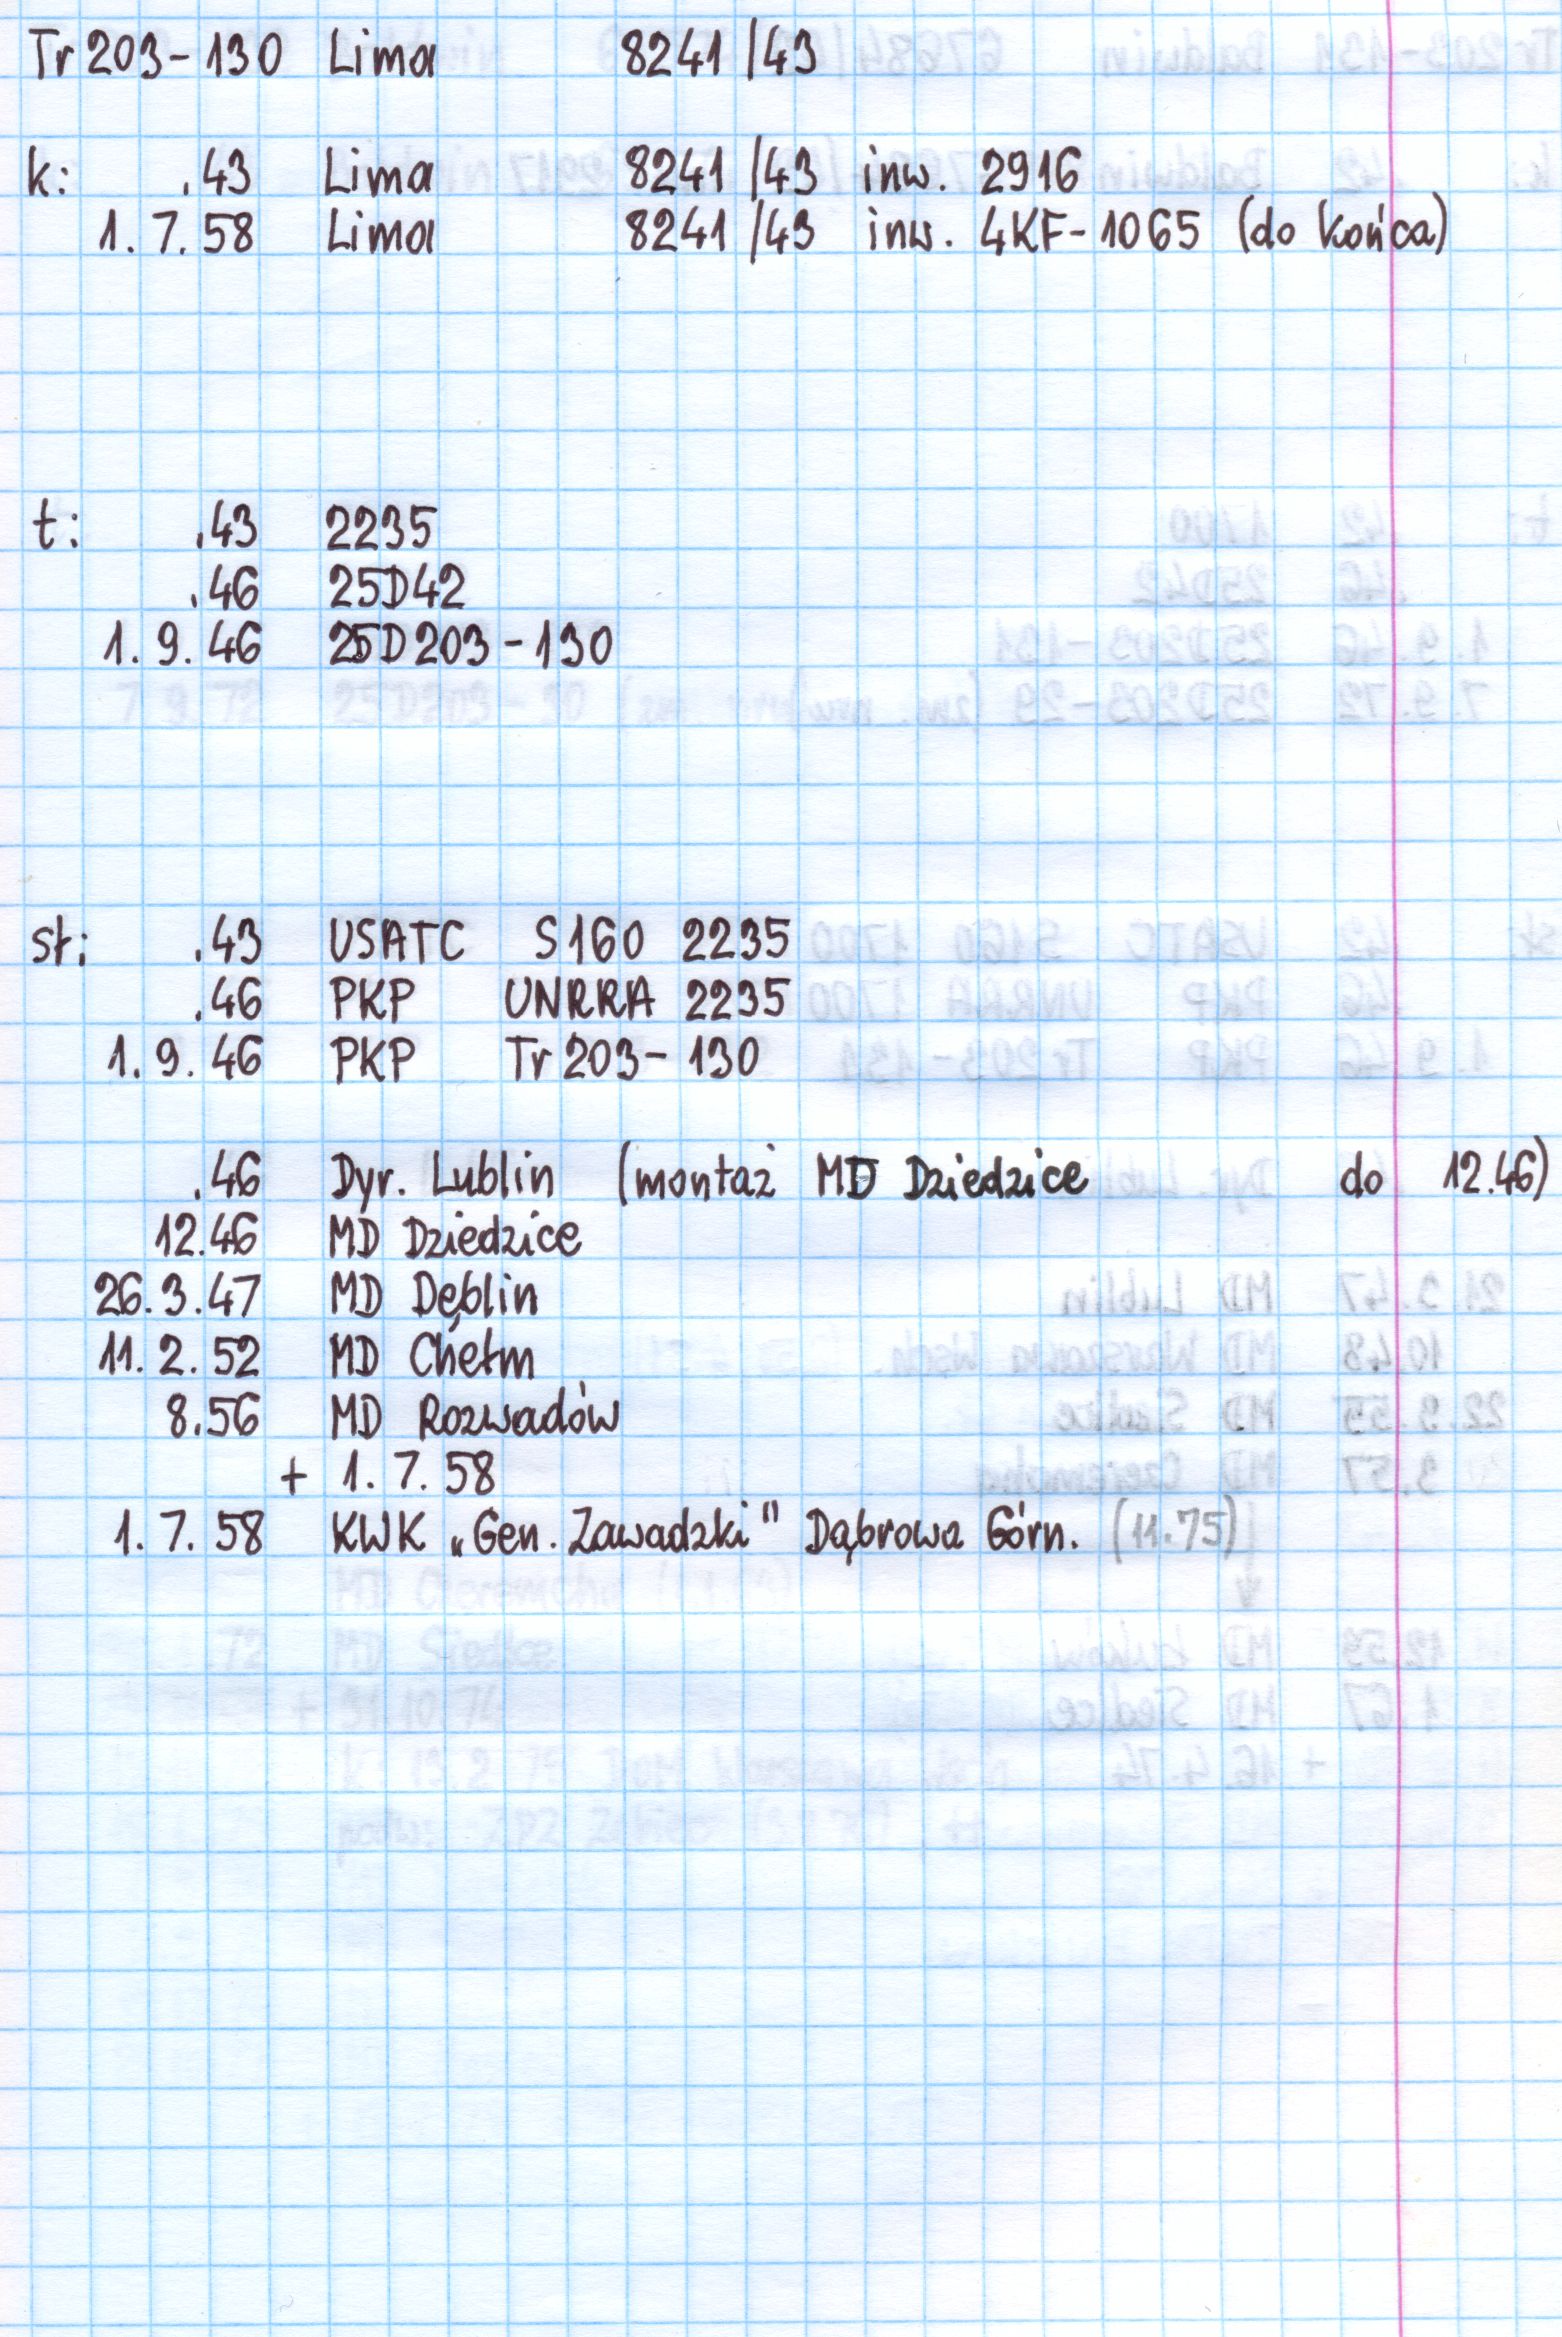 Tr 203-130 Lima 8241/43
k: .43 Lima 8241/43 inw. 2916
1.7.58 Lima 8241/43 inw. 4KF-1065 (do końca)
t: .43 2235
.46 25D42
1.9.46 25D203-130
sł: .43 USATC S160 2235
.46 PKP UNRRA 2235
1.9.46 PKP Tr 203-130
.46 Dyr. Lublin (montaż MD Dziedzice do 12.46)
12.46 MD Dziedzice
26.3.47 MD Dęblin
11.2.52 MD Chełm
8.56 MD Rozwadów
+ 1.7.58
1.7.58 KWK „Gen. Zawadzki" Dąbrowa Górn. (11.75)